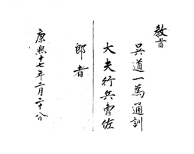 教旨
吳道一為通訓
大夫行兵曹佐
郎者
康熙十七年二月二十